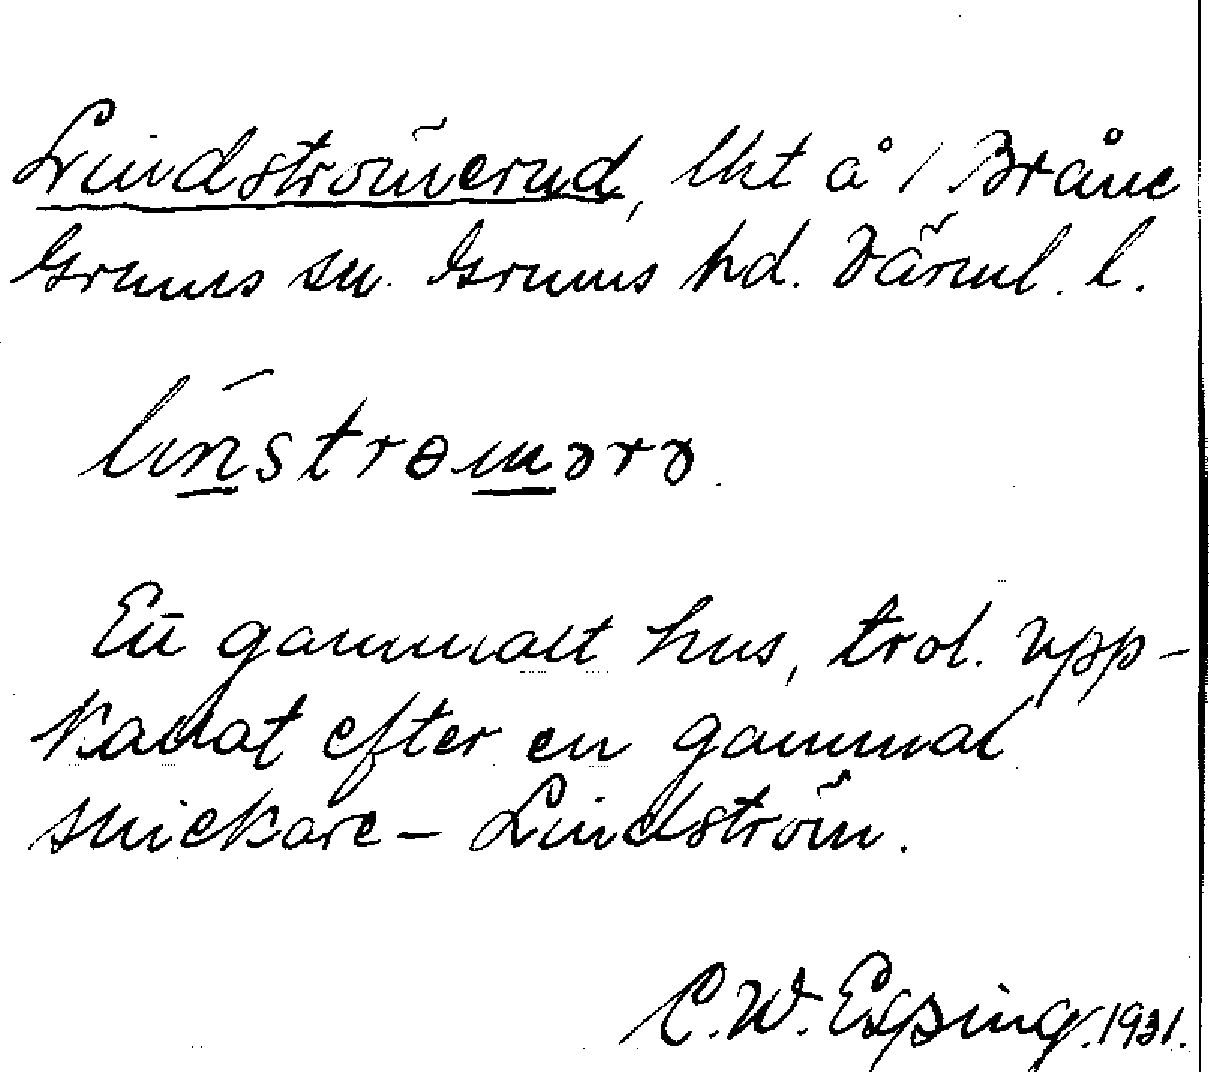 Lindströmerud, lht å 1 Bråne
Grums sn. Grums hd. Värml. l.
linstrɵmərə.
Ett gammalt hus, trol. upp-
kallat efter en gammal
snickare – Lindström.
C. W. Esping. 1931.